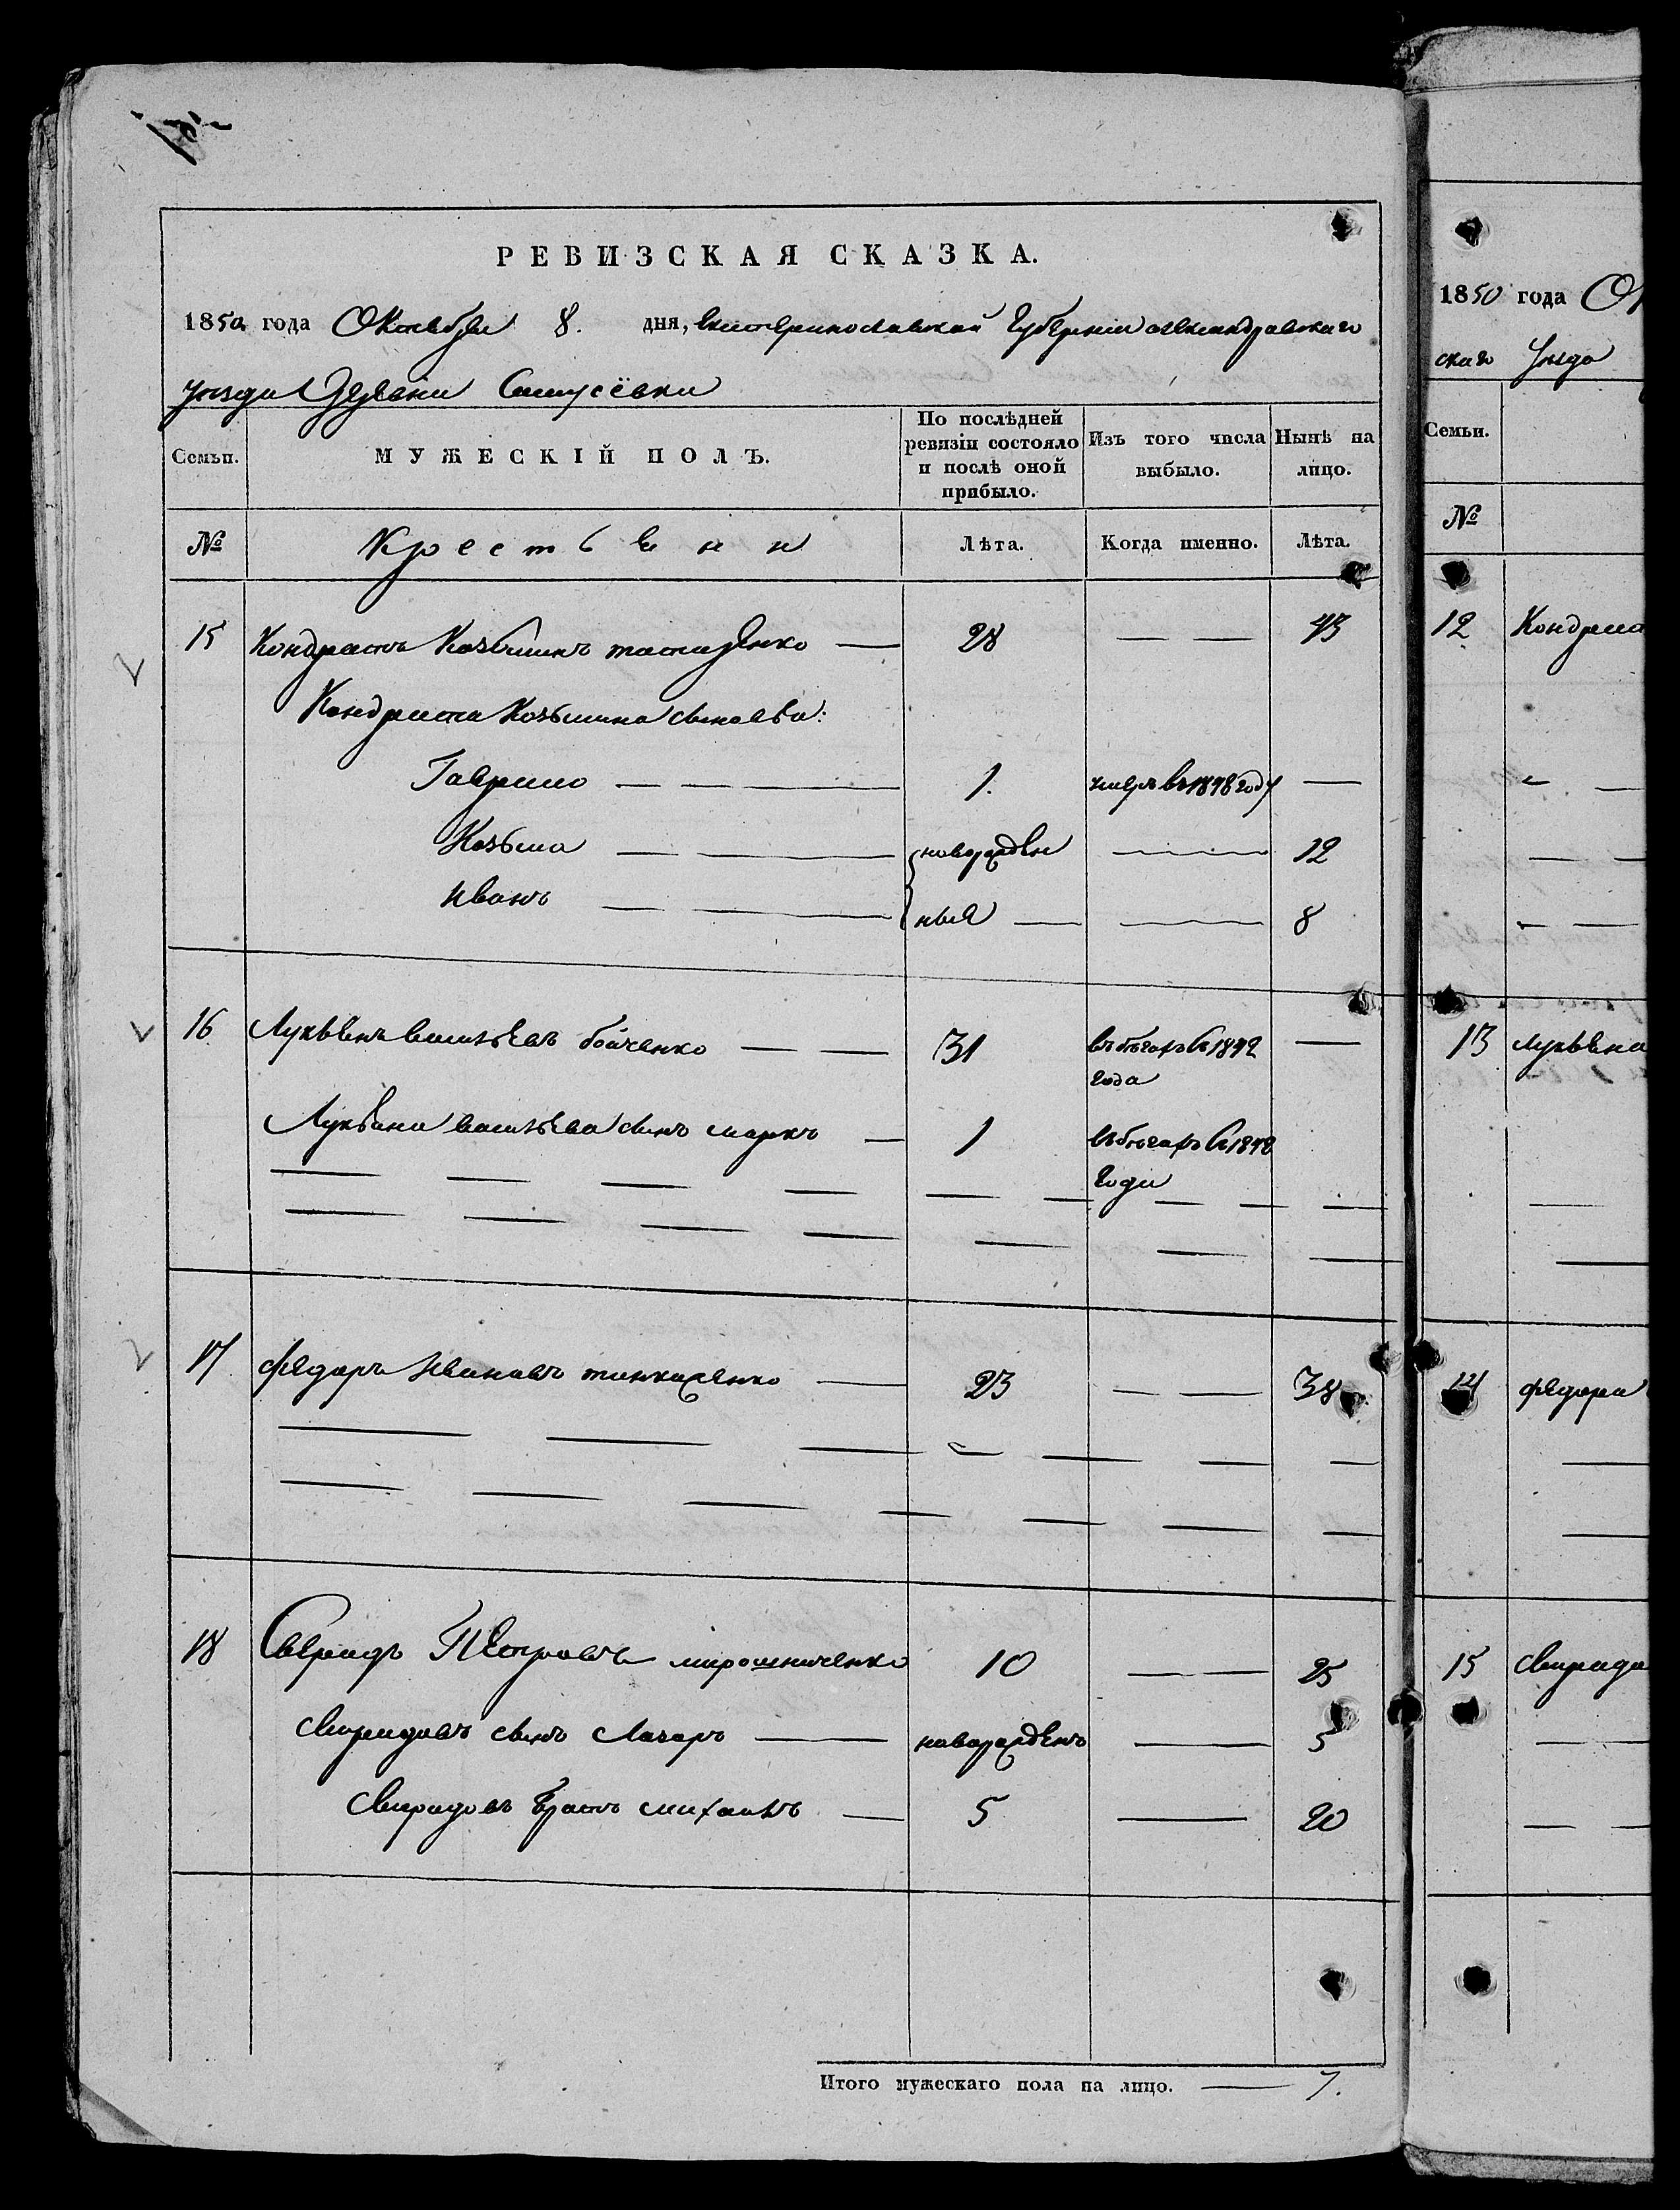 РЕВИЗСКАЯ СКАЗКА.
1850 года Октября 8. дня, Екатеринославской Губерніи Александровскаго
уезда Деревни
Семьи. МУЖЕСКІЙ ПОЛЪ. По послѣдней ревизіи состояло и послѣ оной прибыло. Изъ того числа выбыло. Нынѣ на лицо.
№ Крестьяни Лѣта. Когда именно. Лѣта.
15 Кондратъ Козьминъ 28 — — 43
Кондрата Козьмина сыновья:
Гаврило — — — 1. умеръ въ 1848 году —
Козьма — — — новорожден — 12
Иванъ — — ныя — — 8
16 Лукьянъ Васильевъ бойченко — — 31 въ бегахъ съ 1842 —
года
Лукьяна Васильева сынъ Маркъ — 1 въ бегахъ съ 1848
года
17 Федоръ Ивановъ — 23 — — 38
18 Свиридъ Петровъ мирошниченко 10 — — 25
Свиридовъ сынъ Лазарь — новорожденъ — 5
Свиридовъ братъ Михаилъ — 5 — 20
Итого мужескаго пола на лицо. — 7.
1850 года Ок
скаго Уезда
Семьи.
№
12 Кондрата
13 Лукьяна
14 Федора
15 Свирида